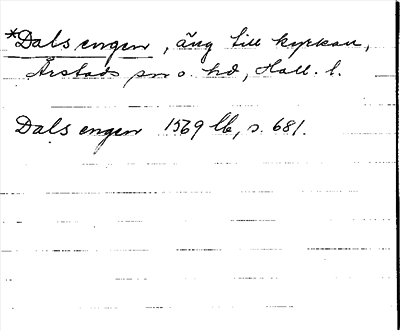 *Dalsengen, äng till kyrkan,
Årstads sn o. hd, Hall. l.
Dals engen 1569 lb, s. 681.